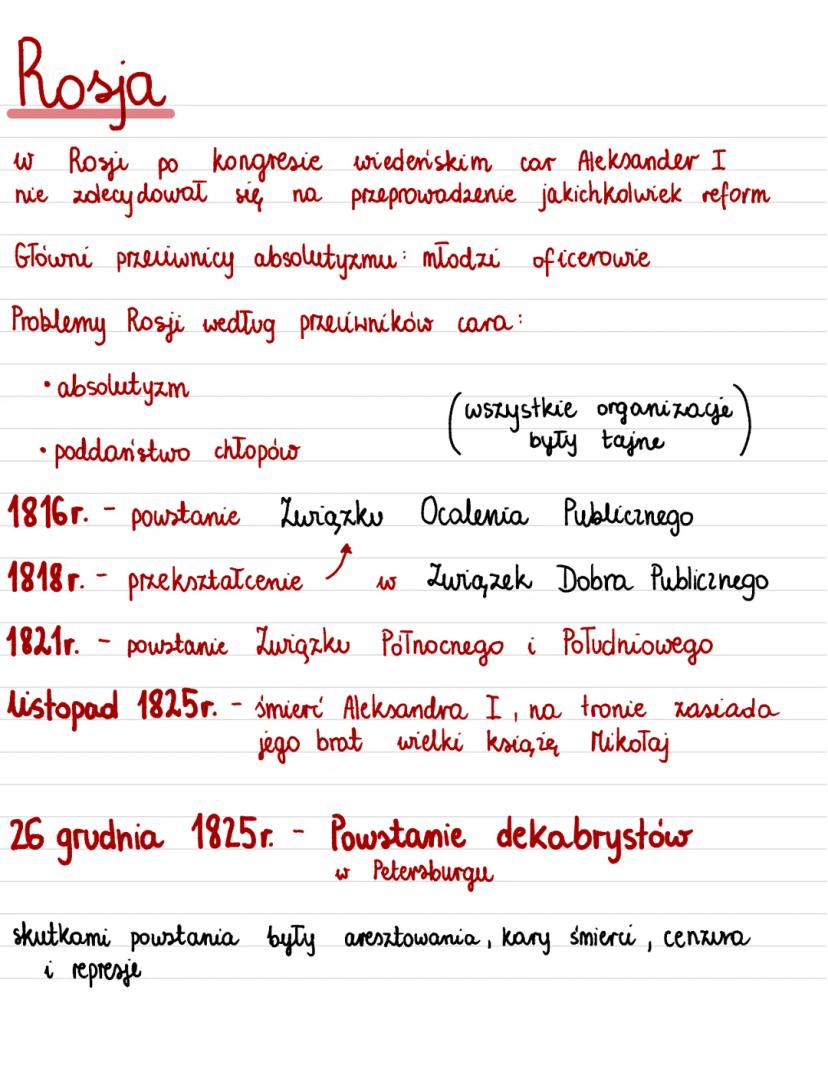 Rosja
w Rosji po kongresie wiedeńskim car Aleksander I
nie zdecydował się na przeprowadzenie jakichkolwiek reform
Główni przeciwnicy absolutyzmu: młodzi oficerowie
Problemy Rosji według przeciwników cara:
• absolutyzm
• poddaństwo chłopów
(wszystkie organizacje
były tajne)
1816r. - powstanie Związku Ocalenia Publicznego
1818r. - przekształcenie w Związek Dobra Publicznego
1821r. - powstanie Związku Północnego i Południowego
listopad 1825r. - śmierć Aleksandra I, na tronie zasiada
jego brat wielki książę Mikołaj
26 grudnia 1825r. - Powstanie dekabrystów
w Petersburgu
skutkami powstania były aresztowania, kary śmierci, cenzura
i represje